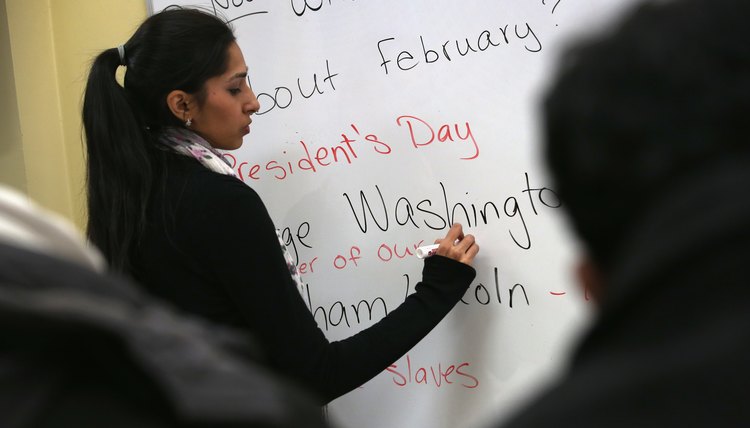 About February?
President's Day
ge Washingto
er of our
ham Lincoln -
slaves